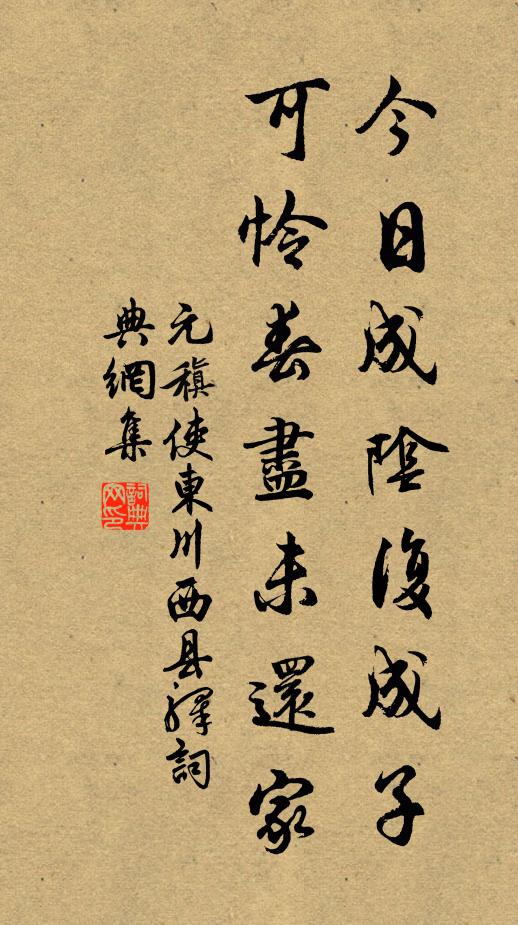 今日成陰復成子
可怜春盡未還家
元稹使東川西县驛詞
典網集
詞典
网印